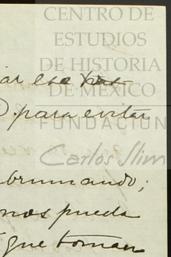 CENTRO DE
ESTUDIOS
DE HISTORIA
DE MÉXICO
FUNDACIÓN
Carlos Slim
para evitar
brumando;
nos pueda
que toman